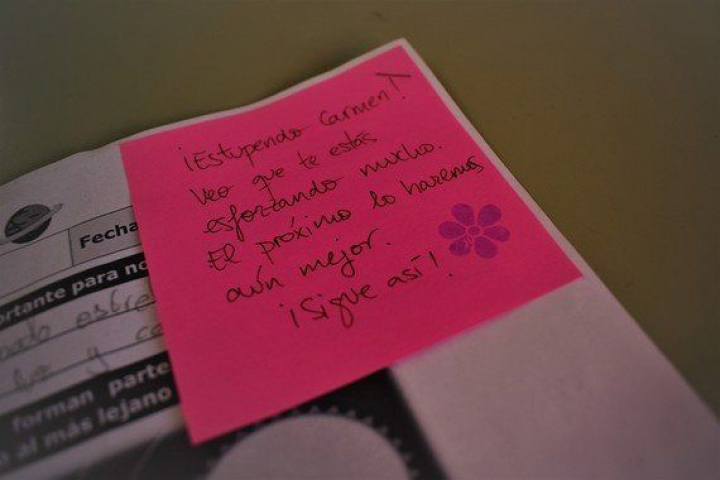 ¡Estupendo Carmen!
Veo que te estás
esforzando mucho.
El próximo lo haremos
aún mejor.
¡Sigue así!
Fecha
rtante para no
forman parte
al más lejano